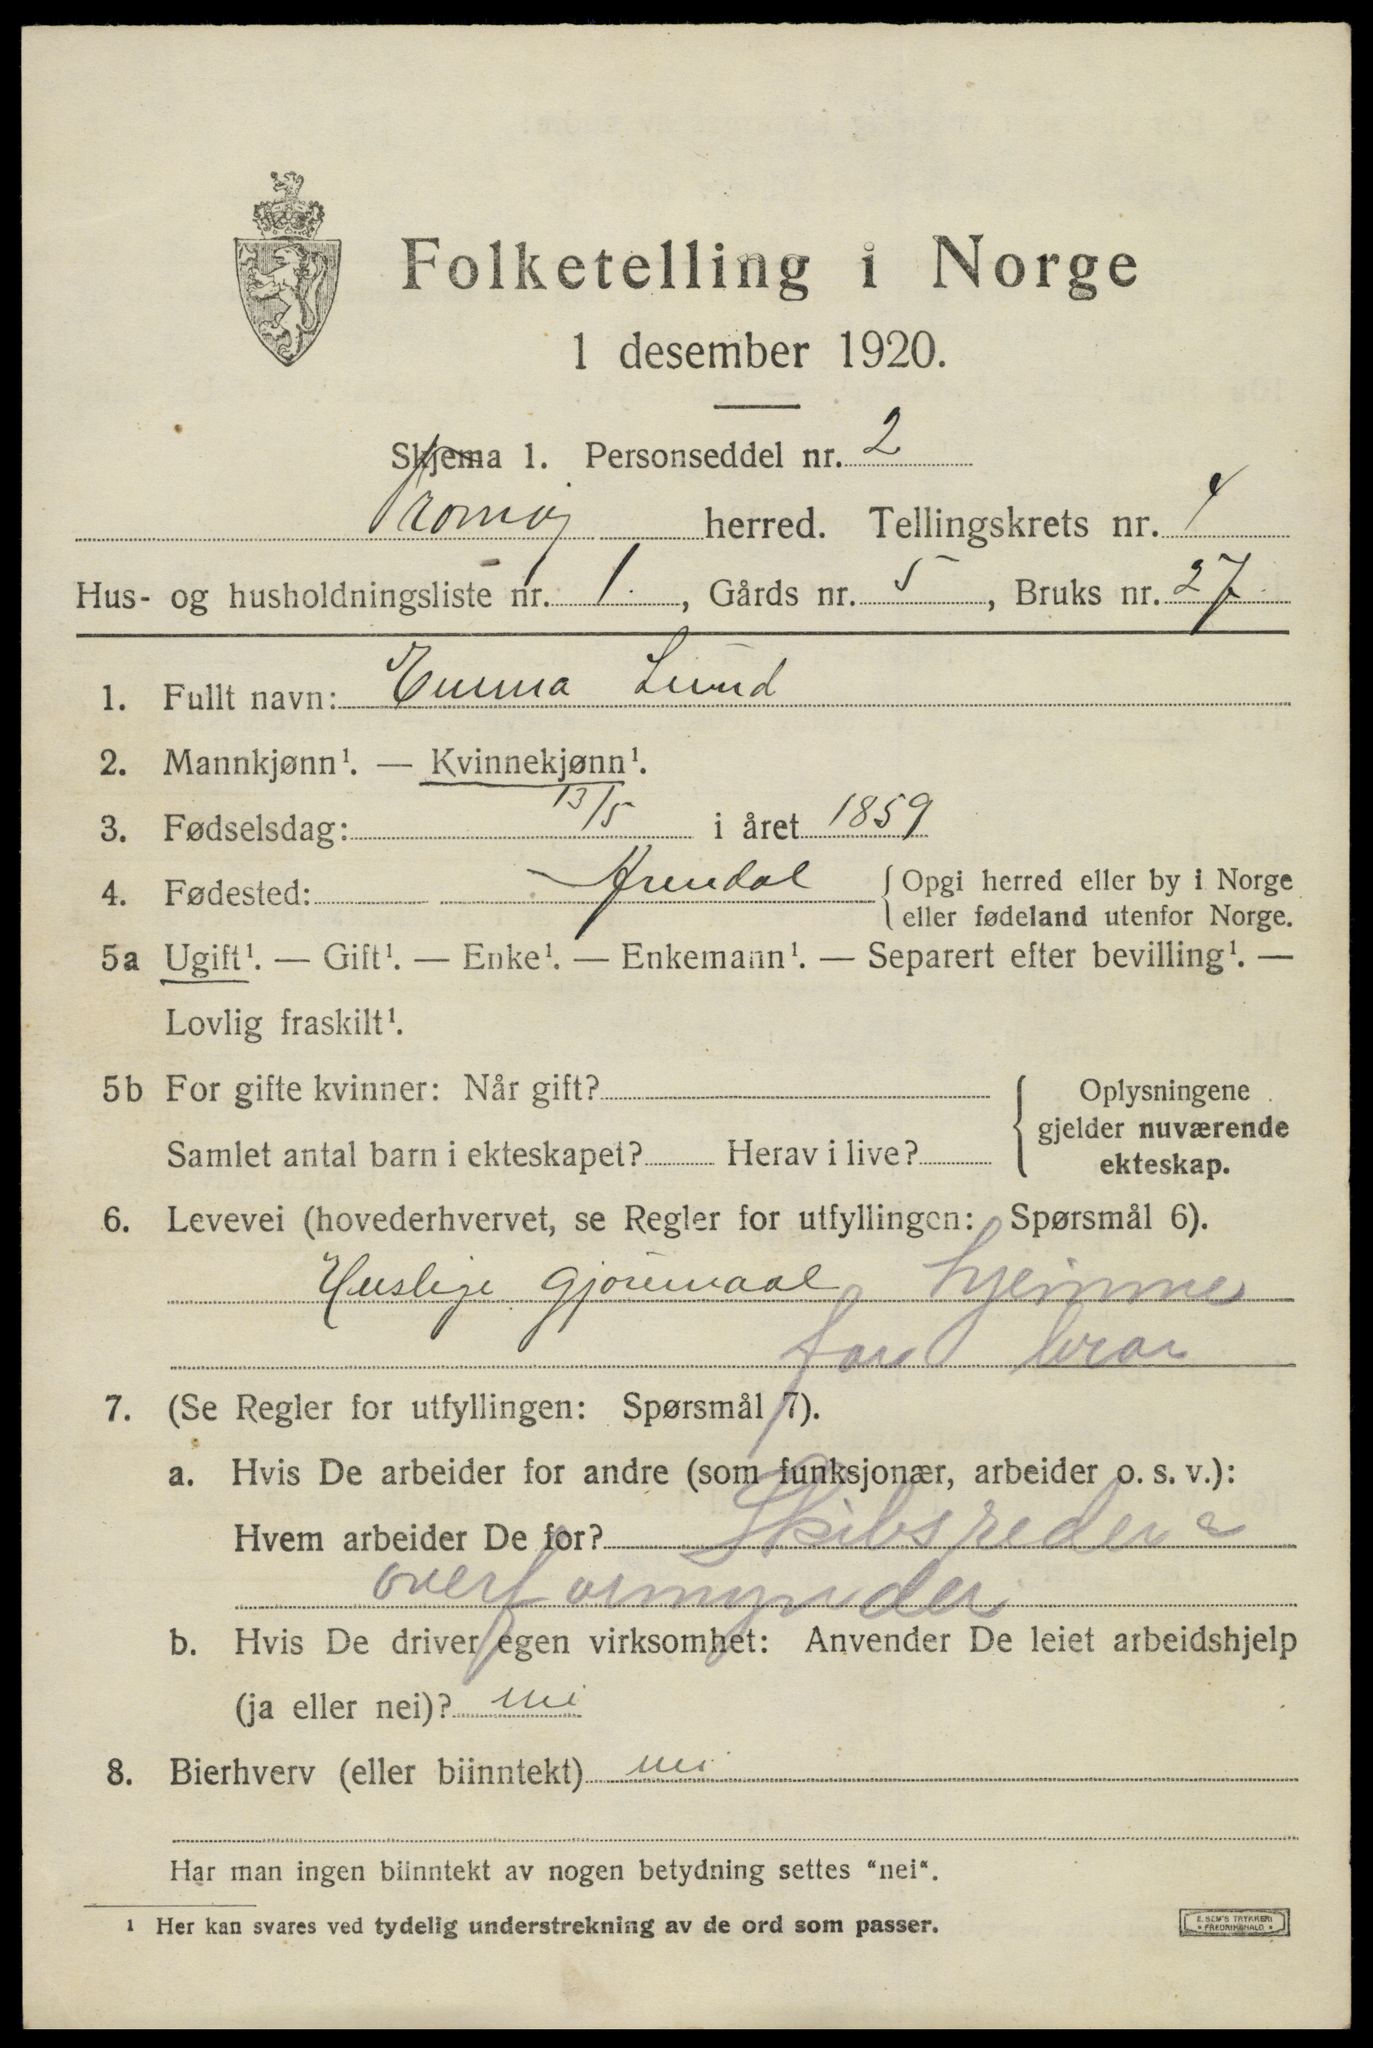 Folketelling i Norge
1 desember 1920.
Skjema 1. Personseddel nr. 2
Tromøy herred. Tellingskrets nr. 4
Hus- og husholdningsliste nr. 1., Gårds nr. 5, Bruks nr. 27
1. Fullt navn: Emma Lund
2. Mannkjønn¹. — Kvinnekjønn¹.
3. Fødselsdag: 13/5 i året 1859
4. Fødested: Arendal { Opgi herred eller by i Norge
eller fødeland utenfor Norge.
5a Ugift¹. — Gift¹. — Enke¹. — Enkemann¹. — Separert efter bevilling¹. —
Lovlig fraskilt¹.
5b For gifte kvinner: Når gift?
Samlet antal barn i ekteskapet? Herav i live?
Oplysningene
gjelder nuværende
ekteskap.
6. Levevei (hovederhvervet, se Regler for utfyllingen: Spørsmål 6).
Huslige gjøremaal hjemme
for bror
7. (Se Regler for utfyllingen: Spørsmål 7).
a. Hvis De arbeider for andre (som funksjonær, arbeider o. s. v.):
Hvem arbeider De for? Skibsreder &
overformynder
b. Hvis De driver egen virksomhet: Anvender De leiet arbeidshjelp
(ja eller nei)? nei
8. Bierhverv (eller biinntekt) nei
Har man ingen biinntekt av nogen betydning settes "nei".
¹ Her kan svares ved tydelig understrekning av de ord som passer.
E. SEM'S TRYKKERI
* FREDRIKSHALD *